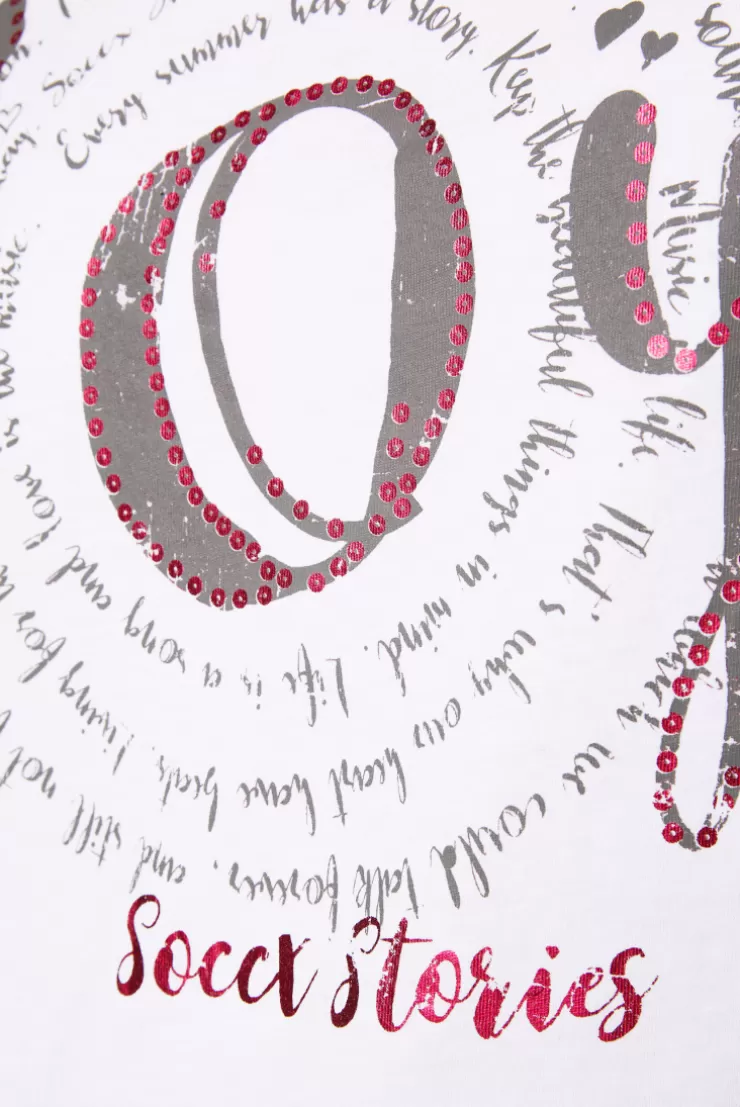 Every summer has a story. Keep the beautiful things in mind. Life is a song and love is the music.
Soccx
Music
life. That's why our heart have beats. Living for
we could talk forever. and still not
oy
Soccx Stories